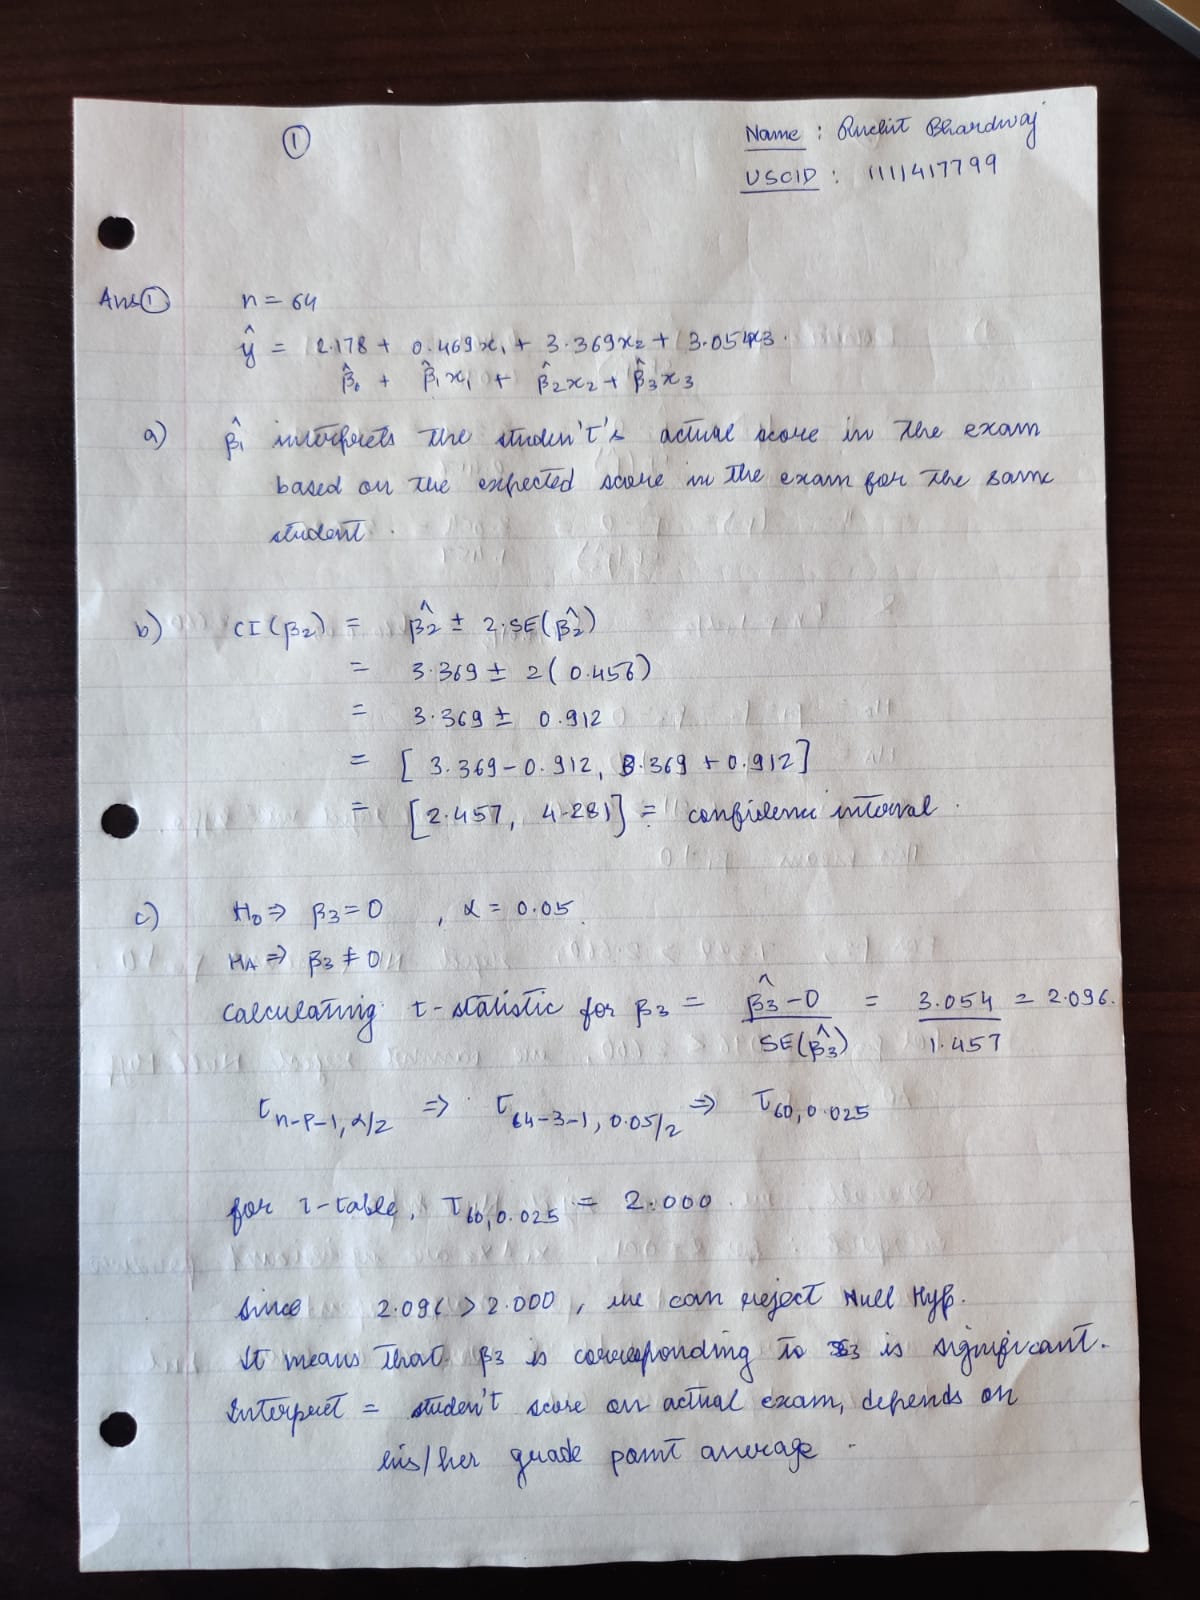 ①
Name : Ruchit Bhardwaj
USCID : 1111417799
Ans① n = 64
ŷ = 2.178 + 0.469x₁ + 3.369x₂ + 3.054x₃.
β̂₀ + β̂₁x₁ + β̂₂x₂ + β̂₃x₃
a) β̂₁ interprets the studen't's actual score in the exam
based on the expected score in the exam for the same
student.
b) CI(β₂) = β̂₂ ± 2·SE(β̂₂)
= 3.369 ± 2(0.456)
= 3.369 ± 0.912
= [3.369-0.912, 3.369 + 0.912]
= [2.457, 4.281] = confidence interval.
c) H₀ ⇒ β₃ = 0 , α = 0.05.
HA ⇒ β₃ ≠ 0
Calculating t-statistic for β₃ = (β̂₃ - 0)/SE(β̂₃) = 3.054/1.457 = 2.096.
t n-p-1, α/2 ⇒ t 64-3-1, 0.05/2 ⇒ t 60, 0.025
for t-table, t 60, 0.025 = 2.000.
Since 2.096 > 2.000, we can reject Null Hyp.
It means that β₃ is corresponding to x3 is significant.
Interpret = studen't score on actual exam, depends on
his/her grade point average.